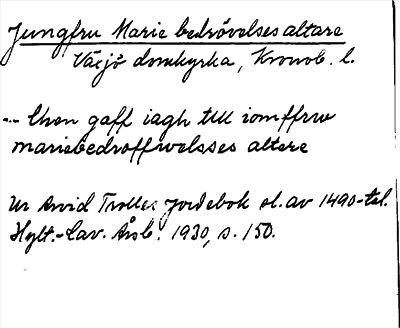 Jungfru Marie bedrövelses altare
Växjö domkyrka, Kronob. l.
... Chon gaff iagh till iomffrw
mariebedroffwelsses altere
Ur Arvid Trolles jordebok sl. av 1490-tal.
Hylt.-Cav. Årsb. 1930, s. 150.